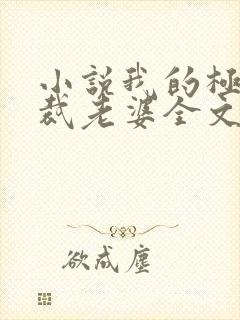 小説我的極
裁老婆全文
欲成塵